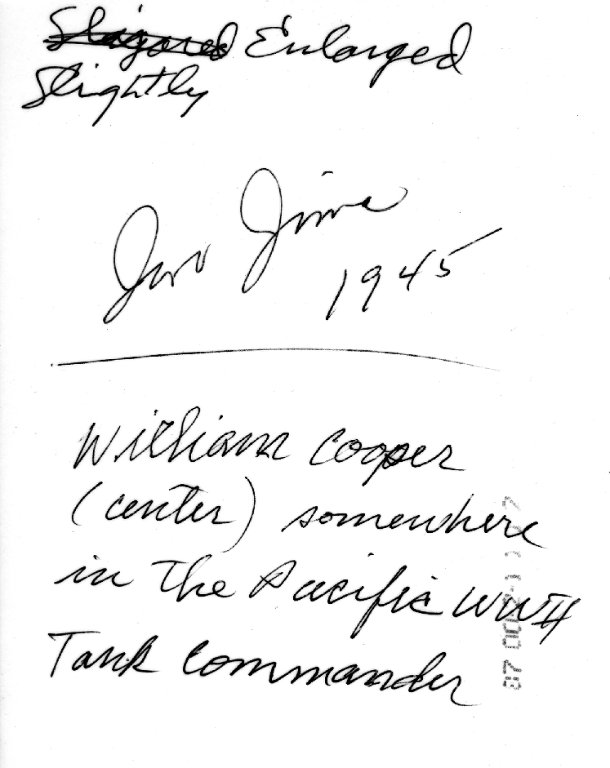 Enlarged
Slightly
Iwo Jima
1945
William Cooper
(center) somewhere
in The Pacific WWII
Tank Commander